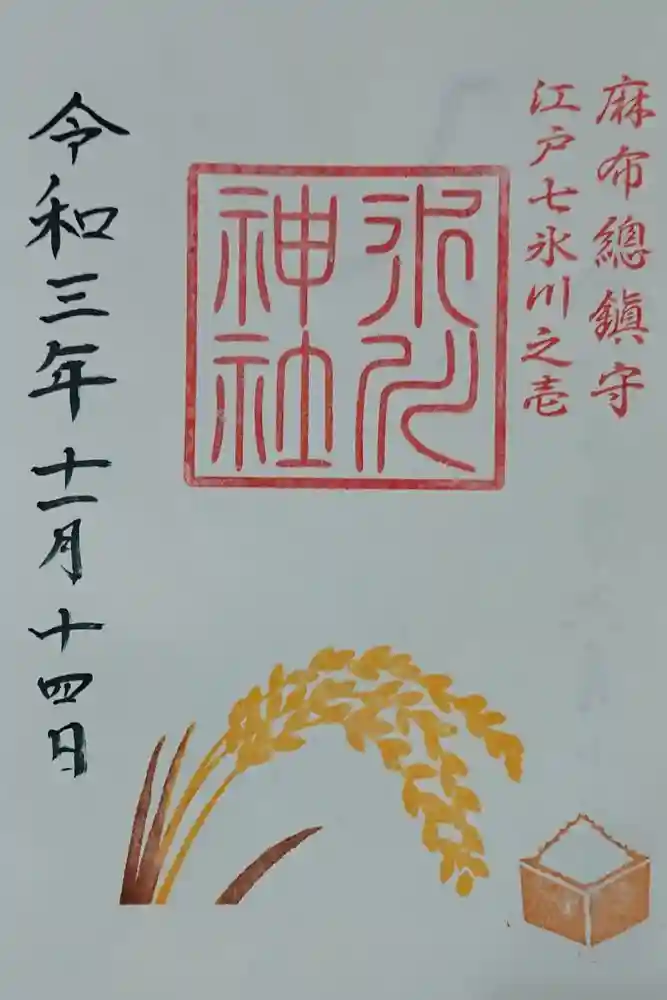 麻布總鎮守
江戸七氷川之壱
氷川
神社
令和三年十一月十四日